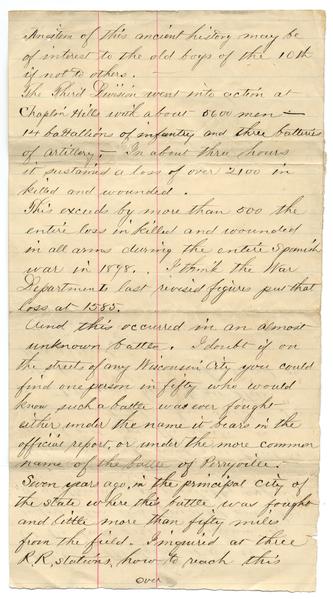 of this ancient history may be
of interest to the old boys of the 10th
if not to others.
The Third Division went into action at
Chaplin Hills with about 5600 men —
14 battallions of infantry and three batteries
of artillery; — In about three hours
it sustained a loss of over 2100 in
killed and wounded.
This exceeds by more than 500 the
entire loss in killed and wounded
in all arms during the entire Spanish
war in 1898.. I think the War
Departments last revised figures put that
loss at 1585.
And this occurred in an almost
unknown battle. I doubt if on
the streets of any Wisconsin City you could
find one person in fifty who would
know such a battle was ever fought
either under the name it bears in the
official report, or under the more common
name of the battle of Perryville. —
Seven years ago, in the principal city of
the state where this battle was fought
and little more than fifty miles
from the field. I inquired at three
R.R. stations, how to reach this
over